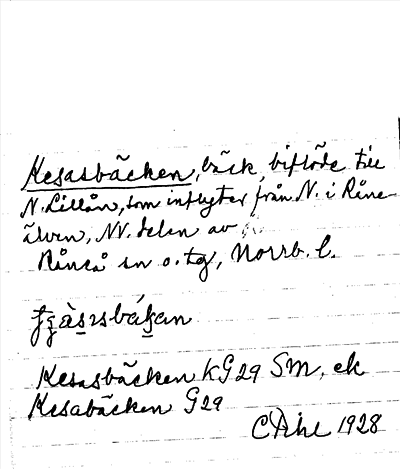 Kesasbäcken, bäck, biflöde till
N. Lillån, som inflyter från N. i Råne-
älven, NV. delen av
Råneå sn o. tg, Norrb. l.
Kesasbäcken KG29 SM, ek
Kesabäcken G29
1928